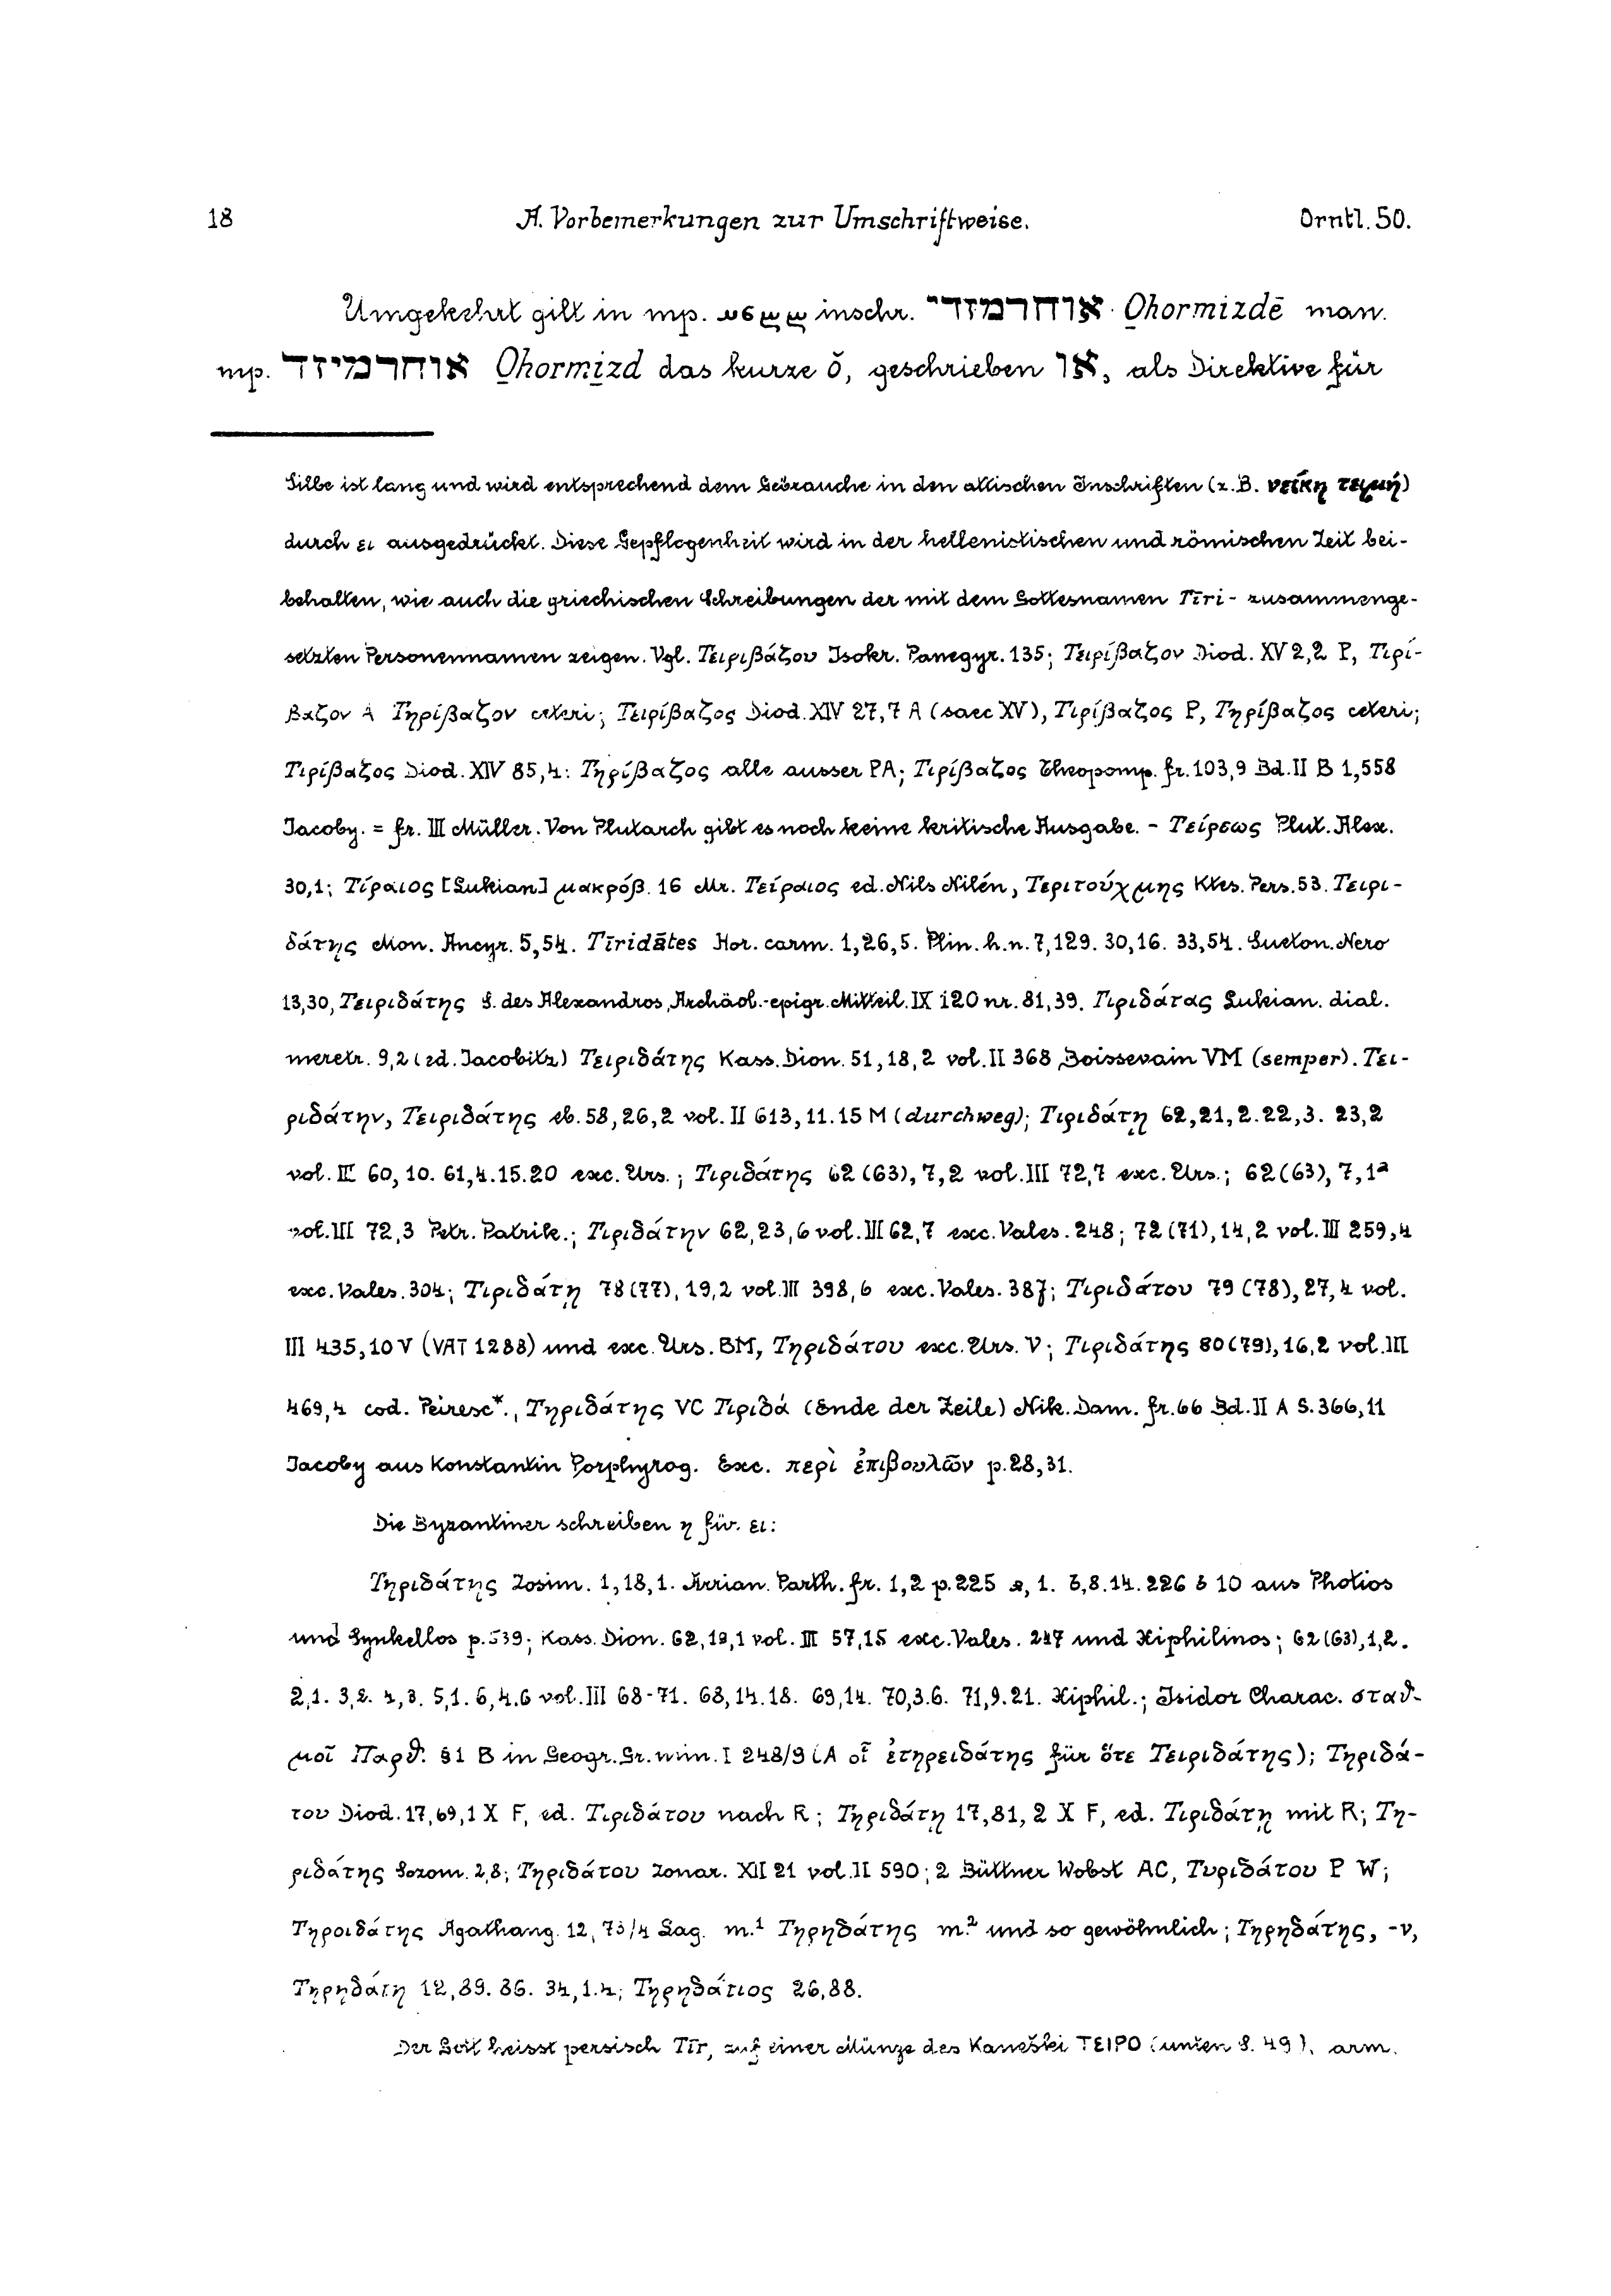 18 A. Vorbemerkungen zur Umschriftweise. Orntl. 50.
Umgekehrt gilt in mp. inschr. אוחרמזדי Ohormizdē man.
mp. אוחרמיזד Ohormizd das kurze ŏ, geschrieben או, als Direktive für
Silbe ist lang und wird entsprechend dem Gebrauche in den attischen Inschriften (z.B. νείκη τειμή)
durch ει ausgedrückt. Diese Gepflogenheit wird in der hellenistischen und römischen Zeit bei-
behalten, wie auch die griechischen Schreibungen der mit dem Gottesnamen Tīri- zusammenge-
setzten Personennamen zeigen. Vgl. Τειριβάζου Isokr. Panegyr. 135; Τειρίβαζον Diod. XV 2,2 P, Τιρί-
βαζον A Τηρίβαζον ceteri; Τειρίβαζος Diod. XIV 27,7 A (saec XV), Τιρίβαζος P, Τηρίβαζος ceteri;
Τιρίβαζος Diod. XIV 85,4: Τηρίβαζος alle ausser PA; Τιρίβαζος Theopomp. fr. 103,9 Bd. II B 1,558
Jacoby. = fr. III Müller. Von Plutarch gibt es noch keine kritische Ausgabe. - Τείρεως Plut. Alex.
30,1; Τίραιος [Lukian] μακρόβ. 16 Mr. Τείραιος ed. Nils Nilén, Τεριτούχμης Ktes. Pers. 53. Τειρι-
δάτης Mon. Ancyr. 5,54. Tīridātes Hor. carm. 1,26,5. Plin. h.n. 7,129. 30,16. 33,54. Sueton. Nero
13,30, Τειριδάτης S. des Alexandros, Archäol.-epigr. Mitteil. IX 120 nr. 81,39. Τιριδάτας Lukian. dial.
meretr. 9,2 (ed. Jacobitz) Τειριδάτης Kass. Dion. 51,18,2 vol. II 368 Boissevain VM (semper). Τει-
ριδάτην, Τειριδάτης eb. 58,26,2 vol. II 613,11.15 M (durchweg); Τιριδάτῃ 62,21,2.22,3. 23,2
vol. III 60,10. 61,4.15.20 exc. Urs.; Τιριδάτης 62 (63), 7,2 vol. III 72,7 exc. Urs.; 62 (63), 7,1ª
vol. III 72,3 Petr. Patrik.; Τιριδάτην 62,23,6 vol. III 62,7 exc. Vales. 248; 72 (71), 14,2 vol. III 259,4
exc. Vales. 304; Τιριδάτῃ 78 (77), 19,2 vol. III 398,6 exc. Vales. 387; Τιριδάτου 79 (78), 27,4 vol.
III 435,10 V (VAT 1288) und exc. Urs. BM, Τηριδάτου exc. Urs. V; Τιριδάτης 80 (79), 16,2 vol. III
469,4 cod. Peiresc*., Τηριδάτης VC Τιριδά (Ende der Zeile) Nik. Dam. fr. 66 Bd. II A S. 366,11
Jacoby aus Konstantin Porphyrog. Exc. περὶ ἐπιβουλῶν p. 28,31.
Die Byzantiner schreiben η für. ει:
Τηριδάτης Zosim. 1,18,1. Arrian. Parth. fr. 1,2 p. 225 a, 1. b, 8.14. 226 b 10 aus Photios
und Synkellos p. 539; Kass. Dion. 62,19,1 vol. III 57,15 exc. Vales. 247 und Xiphilinos; 62 (63), 1,2.
2,1. 3,2. 4,3. 5,1. 6,4.6 vol. III 68-71. 68,14.18. 69,14. 70,3.6. 71,9.21. Xiphil.; Isidor Charac. σταθ-
μοῖ Παρθ. §1 B in Geogr. Gr. min. I 248/9 (A οἷ ἐτηρειδάτης für ὅτε Τειριδάτης); Τηριδά-
του Diod. 17,69,1 X F, ed. Τιριδάτου nach R; Τηριδάτῃ 17,81,2 X F, ed. Τιριδάτῃ mit R; Τη-
ριδάτης Sozom. 2,8; Τηριδάτου Zonar. XII 21 vol. II 590; 2 Büttner Wobst AC, Τυριδάτου P W;
Τηροιδάτης Agathang. 12, 73/4 Lag. m.¹ Τηρηδάτης m.² und so gewöhnlich; Τηρηδάτης, -ν,
Τηρηδάτη 12,89. 86. 34,1.4; Τηρηδάτιος 26,88.
Der Gott heisst persisch Tīr, auf einer Münze des Kaneški ΤΕΙΡΟ (unten S. 49), arm.